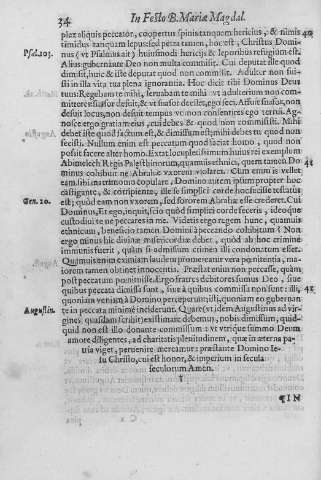 34 In Festo B. Mariæ Magdal.
plex aliquis peccator, coopertus spinis tanquam hericius, & nimis 40
timidus tanquam lepus: sed petra tamen, hoc est, Christus Domi-
Psal. 103. nus (vt Psalmus ait) huiusmodi hericijs & leporibus refugium est.
Alius gubernante Deo non multa commisit. Cui deputat ille quod
dimisit, huic & iste deputat quod non commisit. Adulter non fui-
sti in illa vita tua plena ignorantia. Hoc dicit tibi Dominus Deus
tuus: Regebam te mihi, seruabam te mihi vt adulterium non com-
mitteres suasor defuit, & vt suasor deesset, ego feci. Affuit suasor, non
defuit locus, non defuit tempus vt non consentires ego terrui. Ag-
nosce ergo gratiam eius, cui debes & quod non commisisti. Mihi
debet iste quod factum est, & dimissum est; mihi debes tu quod non
fecisti. Nullum enim est peccatum quod faciat homo, quod non
possit facere alter homo. Extat locuples sanè
Abimelech Regis Palæstinorum, quamuis ethnici, quem tamen Do- 41
minus cohibuit ne Abrahæ vxorem violaret. Cùm enim is vellet
eam sibi matrimonio copulare, Domino autem ipsum propter hoc
castigante, & corripiente, ille se simplici corde hoc fecisse testatus
Gen. 20. est; quòd eam non vxorem, sed sororem Abrahæ esse crederet. Cui
Dominus, Et ego, inquit, scio quòd simplici corde feceris, ideoque
custodiui te ne peccares in me. Videtis ergo regem hunc, quamuis
ethnicum, beneficio tamen Domini à peccando cohibitum? Non
ergo minus hic diuinæ misericordiæ debet, quòd ab hoc crimine
immunis fuerit, quàm si admissum crimen illi condonatum esset.
Quamuis enim eximiam laudem promereatur vera pœnitentia, ma-
iorem tamen obtinet innocentia. Præstat enim non peccasse, quàm
post peccatum pœnituisse. Ergo fratres debitores sumus Deo, siue
quibus peccata dimissa sunt, siue à quibus commissa non sunt: illi, 42
quoniam veniam à Domino perceperunt; illi, quoniam eo gubernan-
Augustin. te in peccata minimè inciderunt. Quare (vt idem Augustinus ad vir-
gines quasdam scribit) existimate debemus, nobis dimissum, quid-
quid non est illo donante commissum: vt vtrique summo Deum
amore diligentes, ad charitatis plenitudinem, quæ in æterna pa-
tria viget, peruenire mereamur: præstante Domino Ie-
su Christo, cui est honor, & imperium in secula
seculorum Amen.
†
¶ IN